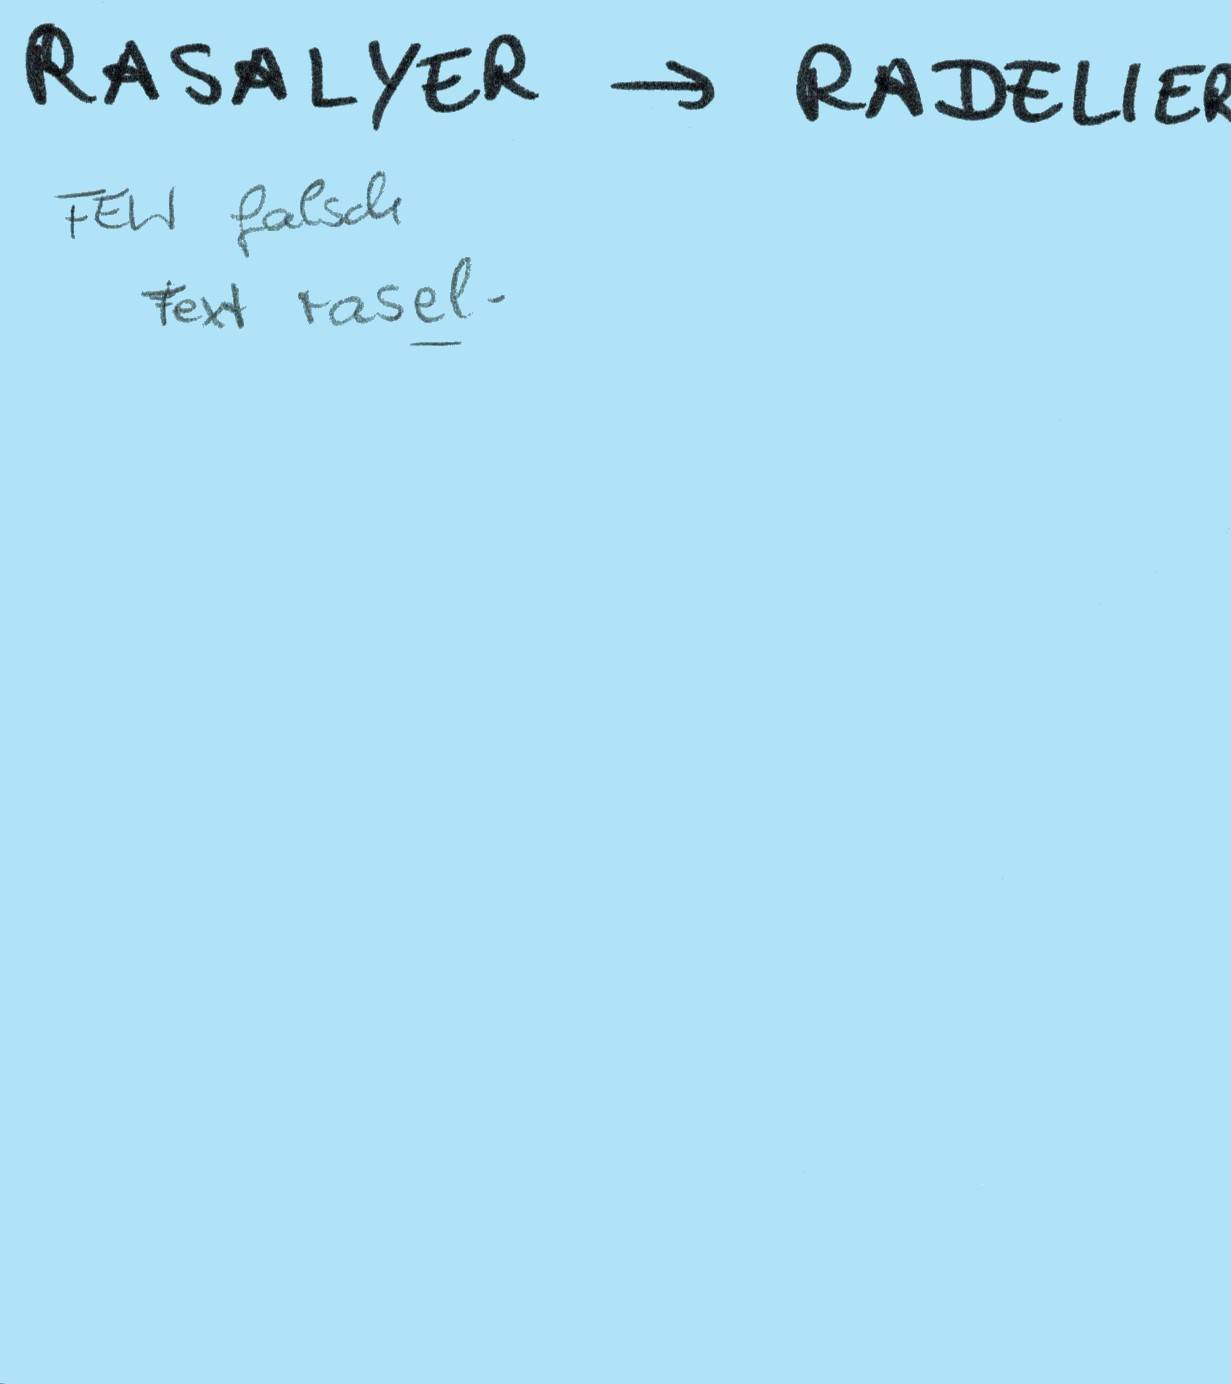 RASALYER → RADELIER
FEW falsch
Text rasel-